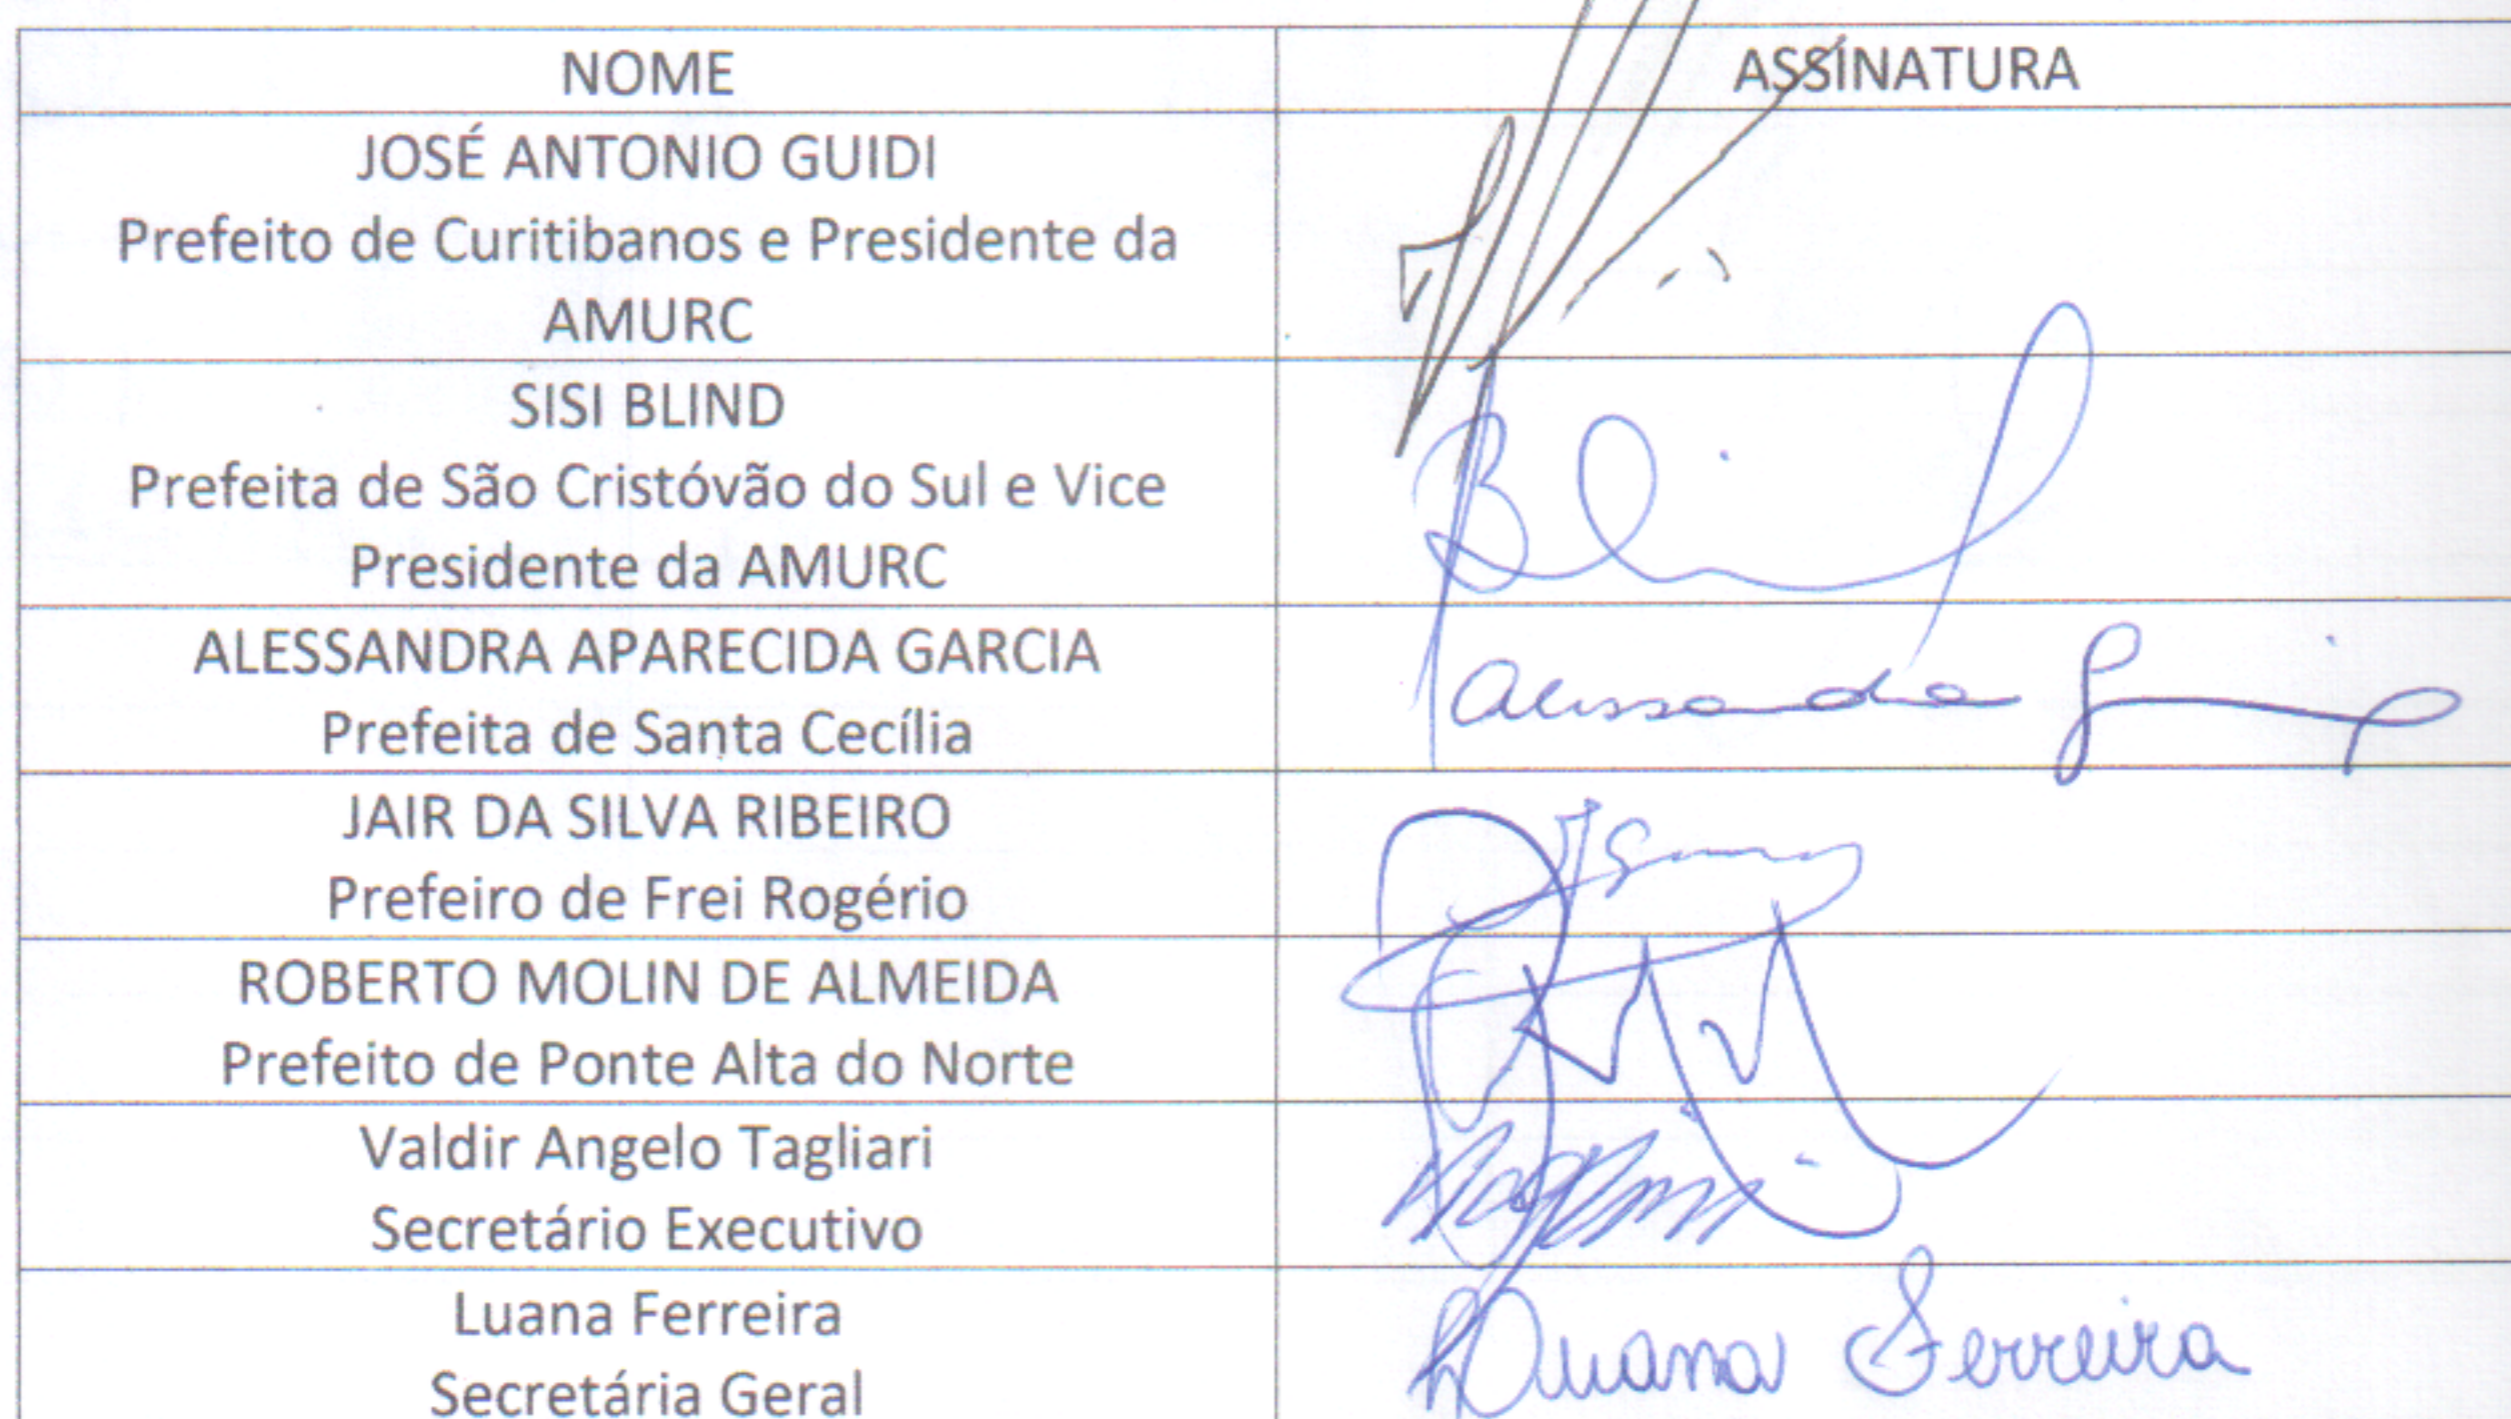 NOME
ASSINATURA
JOSÉ ANTONIO GUIDI
Prefeito de Curitibanos e Presidente da
AMURC
SISI BLIND
Prefeita de São Cristóvão do Sul e Vice
Presidente da AMURC
Blind
ALESSANDRA APARECIDA GARCIA
Prefeita de Santa Cecília
Alessandra
JAIR DA SILVA RIBEIRO
Prefeiro de Frei Rogério
ROBERTO MOLIN DE ALMEIDA
Prefeito de Ponte Alta do Norte
Valdir Angelo Tagliari
Secretário Executivo
Luana Ferreira
Secretária Geral
Luana Ferreira